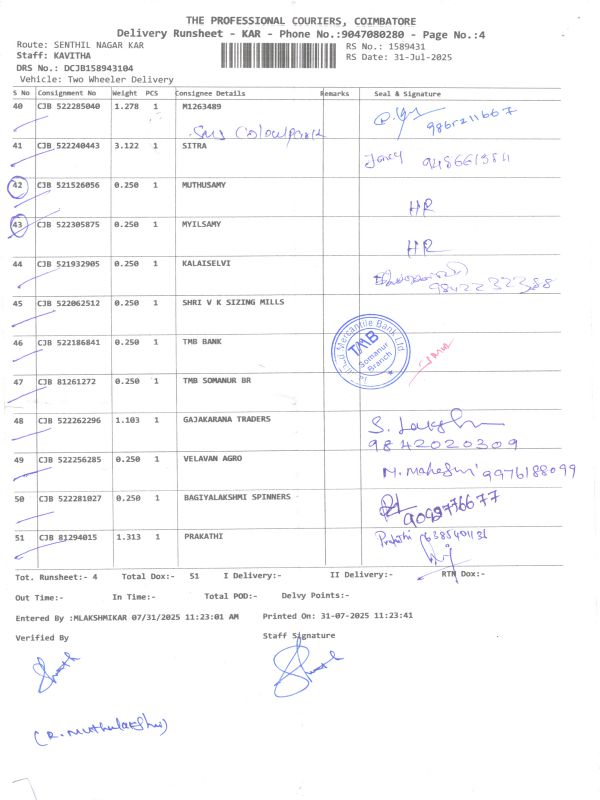 THE PROFESSIONAL COURIERS, COIMBATORE
Delivery Runsheet - KAR - Phone No.:9047080280 - Page No.:4
Route: SENTHIL NAGAR KAR
RS No.: 1589431
Staff: KAVITHA
RS Date: 31-Jul-2025
DRS No.: DCJB158943104
Vehicle: Two Wheeler Delivery
S No Consignment No Weight PCS Consignee Details Remarks Seal & Signature
40 CJB 522285040 1.278 1 M1263489
9865211667
41 CJB 522240443 3.122 1 SITRA
Jancy
42 CJB 521526056 0.250 1 MUTHUSAMY
HR
43 CJB 522305875 0.250 1 MYILSAMY
HR
44 CJB 521932905 0.250 1 KALAISELVI
9842232388
45 CJB 522062512 0.250 1 SHRI V K SIZING MILLS
46 CJB 522186841 0.250 1 TMB BANK
Mercantile Bank Ltd
TMB
Somanur
Branch
47 CJB 81261272 0.250 1 TMB SOMANUR BR
48 CJB 522262296 1.103 1 GAJAKARANA TRADERS
9842020309
49 CJB 522256285 0.250 1 VELAVAN AGRO
9976188099
50 CJB 522281027 0.250 1 BAGIYALAKSHMI SPINNERS
51 CJB 81294015 1.313 1 PRAKATHI
Tot. Runsheet:- 4 Total Dox:- 51 I Delivery:- II Delivery:- RTN Dox:-
Out Time:- In Time:- Total POD:- Delvy Points:-
Entered By :MLAKSHMIKAR 07/31/2025 11:23:01 AM Printed On: 31-07-2025 11:23:41
Verified By
Staff Signature
(R. Muthulakshmi)